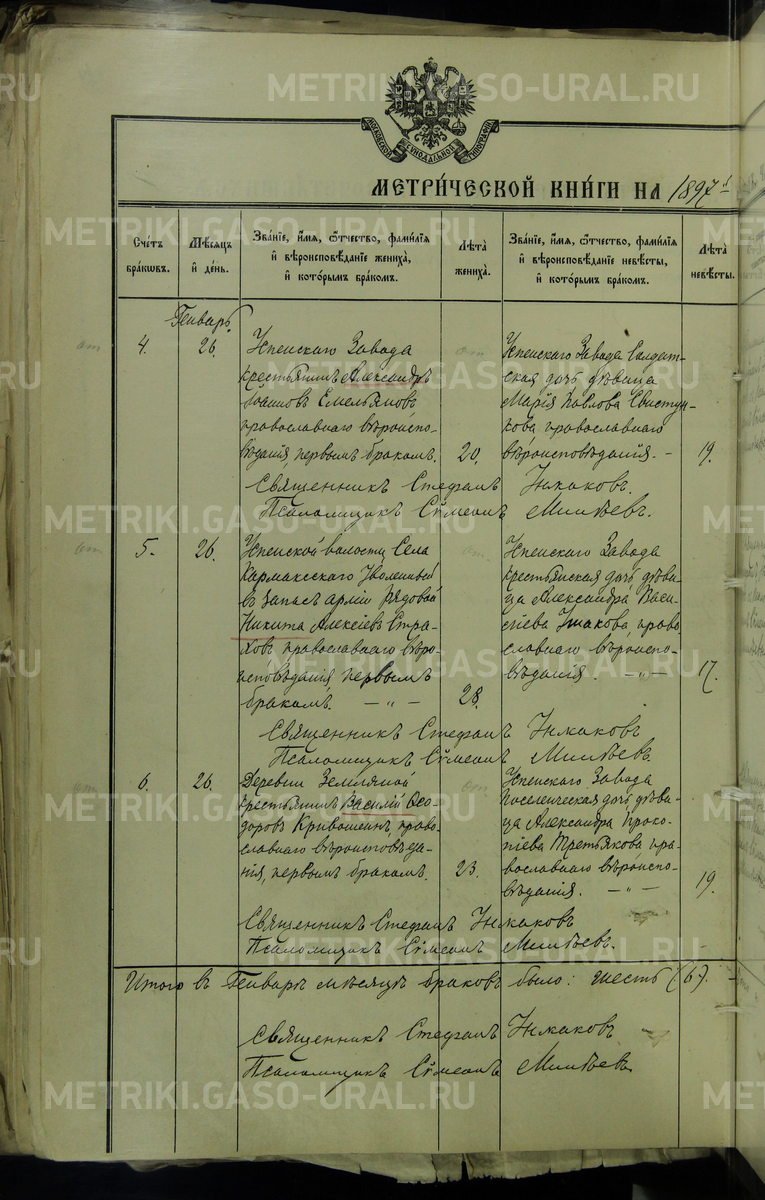 METRIKI.GASO-URAL.RU
МОСКОВСКОЙ СУНОДАЛЬНОЙ ТИПОГРАФІИ
МЕТРИ́ЧЕСКОЙ КНИ́ГИ НА 1897 г.
Сче́тъ бра́ковъ.
Мѣ́сяцъ и҆ де́нь.
Зва́нїе, и҆́мѧ, ѿ́тчество, фами́лїѧ и҆ вѣроисповѣ́данїе жениха̀, и҆ кото́рымъ бра́комъ.
Лѣ́та жениха̀.
Зва́нїе, и҆́мѧ, ѿ́тчество, фами́лїѧ и҆ вѣроисповѣ́данїе невѣ́сты, и҆ кото́рымъ бра́комъ.
Лѣ́та невѣ́сты.
Генварь.
4.
26.
Успенскаго Завода
крестьянинъ Александръ
Іоанновъ Емельяновъ,
православнаго вѣроиспо-
вѣданія, первымъ бракомъ.
20.
Успенскаго Завода Солдат-
ская дочь дѣвица
Марія Павлова Свистун-
кова, православнаго
вѣроисповѣданія. –
19.
Священникъ Стефанъ
Псаломщикъ Сѵмеонъ
5.
26.
Успенской волости, Села
Кармакскаго Уволенный
въ запасъ арміи рядовой
Никита Алексіевъ Стра-
ховъ, православнаго вѣро-
исповѣданія, первымъ
бракомъ. – „ –
28.
Успенскаго Завода
крестьянская дочь дѣви-
ца Александра Васи-
ліева Ушакова, право-
славнаго вѣроиспо-
вѣданія. – „ –
17.
Священникъ Стефанъ
Псаломщикъ Сѵмеонъ
6.
26.
Деревни Земляной
крестьянинъ Василій Ѳео-
доровъ Кривошеинъ, право-
славнаго вѣроисповѣда-
нія, первымъ бракомъ.
23.
Успенскаго Завода
Поселенческая дочь дѣви-
ца Александра Проко-
піева Третьякова, пра-
вославнаго вѣроиспо-
вѣданія. – „ –
19.
Священникъ Стефанъ
Псаломщикъ Сѵмеонъ
Итого въ Генварѣ мѣсяцѣ браковъ было: шесть (6).
Священникъ Стефанъ
Псаломщикъ Сѵмеонъ